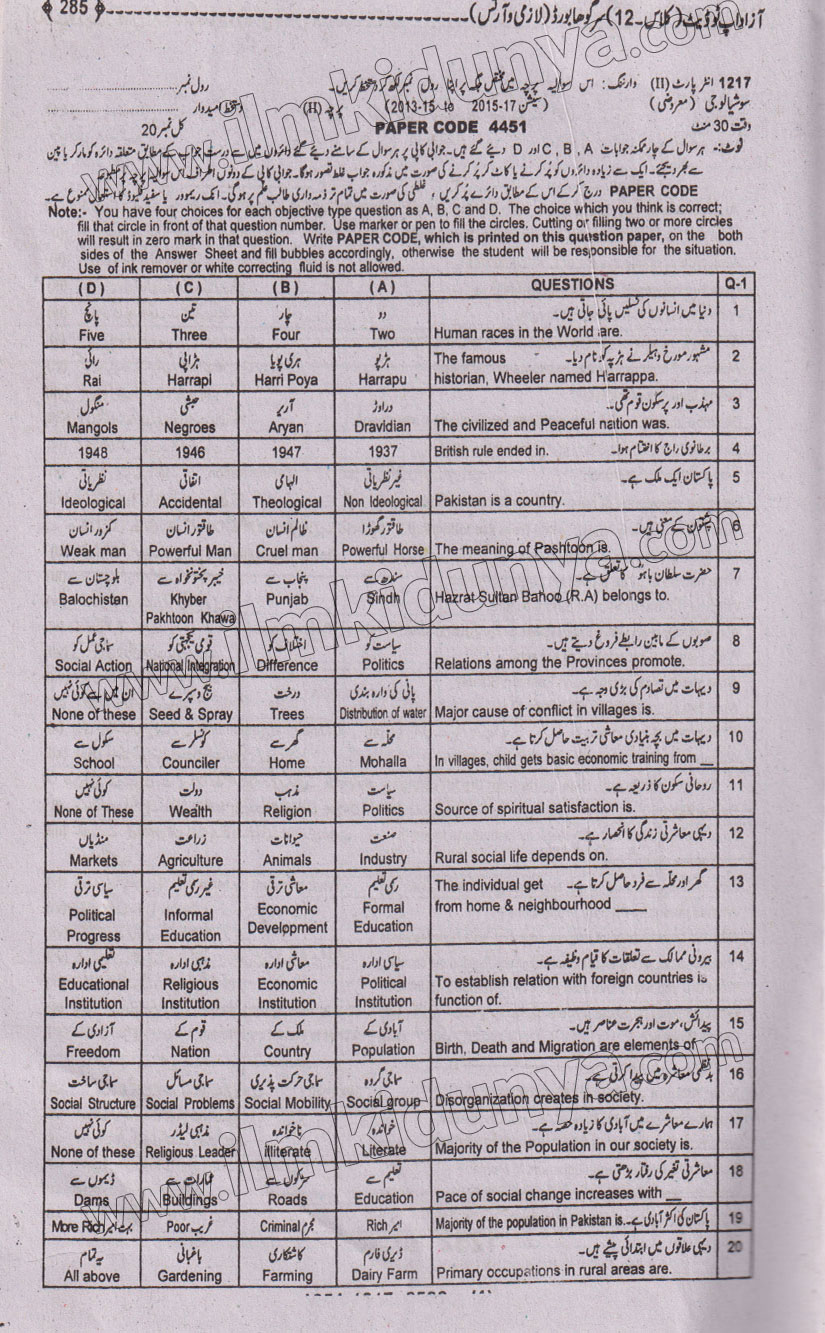 ﴾ 285 ﴿ آزاد اپ ٹو ڈیٹ (کلاس ۔ 12) سرگودھا بورڈ (لازمی و آرٹس)
1217 انٹر پارٹ (II) وارننگ : اس سوالیہ پرچہ میں مختص جگہ پر اپنا رول نمبر لکھ کر دستخط کریں۔ رول نمبر
سوشیالوجی (معروضی) (سیشن 2015-17 to 2013-15) پرچہ (II) دستخط امیدوار
وقت 30 منٹ PAPER CODE 4451 کل نمبر 20
نوٹ:- ہر سوال کے چار ممکنہ جوابات A, B, C اور D دیئے گئے ہیں۔ جوابی کاپی پر ہر سوال کے سامنے دیئے گئے دائروں میں سے درست جواب کے مطابق متعلقہ دائرہ کو مارکر یا پین
سے بھر دیجئے۔ ایک سے زیادہ دائروں کو پُر کرنے یا کاٹ کر پُر کرنے کی صورت میں مذکورہ جواب غلط تصور ہوگا۔ جوابی کاپی کے دونوں اطراف اس سوالیہ پرچہ پر
PAPER CODE درج کر کے اس کے مطابق دائرے پُر کریں، غلطی کی صورت میں تمام تر ذمہ داری طالب علم پر ہوگی۔ انک ریموور یا سفید فلیوڈ کا استعمال ممنوع ہے۔
Note:- You have four choices for each objective type question as A, B, C and D. The choice which you think is correct;
fill that circle in front of that question number. Use marker or pen to fill the circles. Cutting or filling two or more circles
will result in zero mark in that question. Write PAPER CODE, which is printed on this question paper, on the both
sides of the Answer Sheet and fill bubbles accordingly, otherwise the student will be responsible for the situation.
Use of ink remover or white correcting fluid is not allowed.
(D) (C) (B) (A) QUESTIONS Q-1
پانچ تین چار دو دنیا میں انسانوں کی نسلیں پائی جاتی ہیں۔ 1
Five Three Four Two Human races in the World are.
رائی ہڑاپی ہری پویا ہڑپو The famous مشہور مورخ وہیلر نے ہڑپہ کو نام دیا۔ 2
Rai Harrapi Harri Poya Harrapu historian, Wheeler named Harrappa.
منگول حبشی آریہ دراوڑ مہذب اور پرسکون قوم تھی۔ 3
Mangols Negroes Aryan Dravidian The civilized and Peaceful nation was.
1948 1946 1947 1937 British rule ended in. برطانوی راج کا اختتام ہوا۔ 4
نظریاتی اتفاقی الہامی غیر نظریاتی پاکستان ایک ملک ہے۔ 5
Ideological Accidental Theological Non Ideological Pakistan is a country.
کمزور انسان طاقتور انسان ظالم انسان طاقتور گھوڑا پشتون کے معنی ہیں۔ 6
Weak man Powerful Man Cruel man Powerful Horse The meaning of Pashtoon is.
بلوچستان سے خیبر پختونخواہ سے پنجاب سے سندھ سے حضرت سلطان باہو کا تعلق ہے۔ 7
Balochistan Khyber Punjab Sindh Hazrat Sultan Bahoo (R.A) belongs to.
Pakhtoon Khawa
سماجی عمل کو قومی یکجہتی کو اختلاف کو سیاست کو صوبوں کے مابین رابطے فروغ دیتے ہیں۔ 8
Social Action National Integration Difference Politics Relations among the Provinces promote.
ان میں سے کوئی نہیں بیج و سپرے درخت پانی کی وارہ بندی دیہات میں تصادم کی بڑی وجہ ہے۔ 9
None of these Seed & Spray Trees Distribution of water Major cause of conflict in villages is.
سکول سے کونسلر سے گھر سے محلہ سے دیہات میں بچہ بنیادی معاشی تربیت حاصل کرتا ہے۔ 10
School Counciler Home Mohalla In villages, child gets basic economic training from __
کوئی نہیں دولت مذہب سیاست روحانی سکون کا ذریعہ ہے۔ 11
None of These Wealth Religion Politics Source of spiritual satisfaction is.
منڈیاں زراعت حیوانات صنعت دیہی معاشرتی زندگی کا انحصار ہے۔ 12
Markets Agriculture Animals Industry Rural social life depends on.
سیاسی ترقی غیر رسمی تعلیم معاشی ترقی رسمی تعلیم The individual get گھر اور محلہ سے فرد حاصل کرتا ہے۔ 13
Political Informal Economic Formal from home & neighbourhood ____
Progress Education Development Education
تعلیمی ادارہ مذہبی ادارہ معاشی ادارہ سیاسی ادارہ بیرونی ممالک سے تعلقات کا قیام وظیفہ ہے۔ 14
Educational Religious Economic Political To establish relation with foreign countries is
Institution Institution Institution Institution function of.
آزادی کے قوم کے ملک کے آبادی کے پیدائش، موت اور ہجرت عناصر ہیں۔ 15
Freedom Nation Country Population Birth, Death and Migration are elements of
سماجی ساخت سماجی مسائل سماجی حرکت پذیری سماجی گروہ بدنظمی معاشرہ میں پیدا کرتی ہے۔ 16
Social Structure Social Problems Social Mobility Social group Disorganization creates in society.
کوئی نہیں مذہبی لیڈر ناخواندہ خواندہ ہمارے معاشرے میں آبادی کا زیادہ حصہ ہے۔ 17
None of these Religious Leader Illiterate Literate Majority of the Population in our society is.
ڈیموں سے عمارات سے سڑکوں سے تعلیم سے معاشرتی تغیر کی رفتار بڑھتی ہے۔ 18
Dams Buildings Roads Education Pace of social change increases with __
More Rich بہت امیر Poor غریب Criminal مجرم Rich امیر Majority of the population in Pakistan is. پاکستان کی اکثر آبادی ہے۔ 19
یہ تمام باغبانی کاشتکاری ڈیری فارم دیہی علاقوں میں ابتدائی پیشے ہیں۔ 20
All above Gardening Farming Dairy Farm Primary occupations in rural areas are.
www.ilmkidunya.com
www.ilmkidunya.com
www.ilmkidunya.com